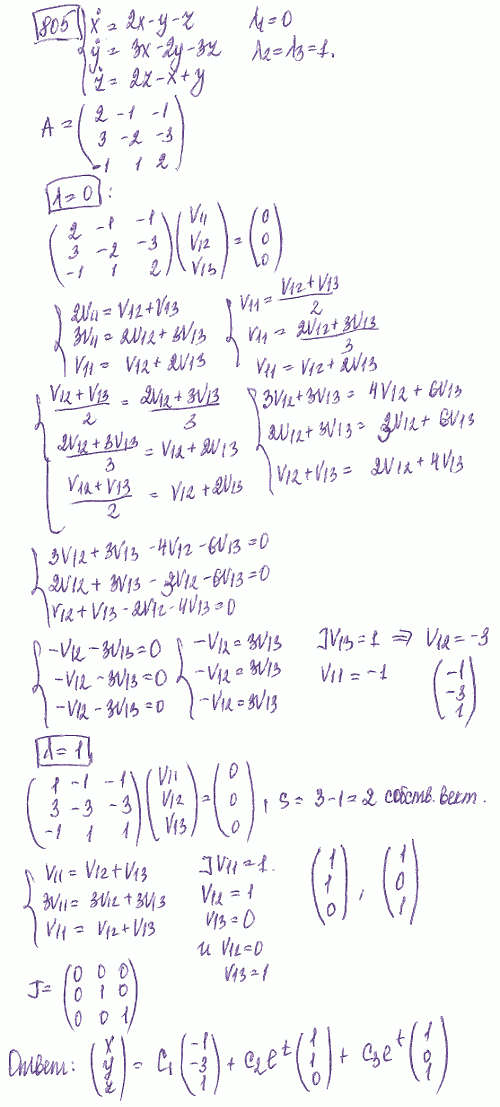 805 { ẋ = 2x-y-z   λ₁=0
ẏ = 3x-2y-3z   λ₂=λ₃=1.
ż = 2z-x+y
A = ( 2 -1 -1
3 -2 -3
-1 1 2 )
λ=0 :
( 2 -1 -1
3 -2 -3
-1 1 2 ) ( V₁₁
V₁₂
V₁₃ ) = ( 0
0
0 )
{ 2V₁₁ = V₁₂+V₁₃
3V₁₁ = 2V₁₂+3V₁₃
V₁₁ = V₁₂+2V₁₃
{ V₁₁ = (V₁₂+V₁₃)/2
V₁₁ = (2V₁₂+3V₁₃)/3
V₁₁ = V₁₂+2V₁₃
{ (V₁₂+V₁₃)/2 = (2V₁₂+3V₁₃)/3
(2V₁₂+3V₁₃)/3 = V₁₂+2V₁₃
(V₁₂+V₁₃)/2 = V₁₂+2V₁₃
{ 3V₁₂+3V₁₃ = 4V₁₂+6V₁₃
2V₁₂+3V₁₃ = 3V₁₂+6V₁₃
V₁₂+V₁₃ = 2V₁₂+4V₁₃
{ 3V₁₂+3V₁₃-4V₁₂-6V₁₃=0
2V₁₂+3V₁₃-3V₁₂-6V₁₃=0
V₁₂+V₁₃-2V₁₂-4V₁₃=0
{ -V₁₂-3V₁₃=0
-V₁₂-3V₁₃=0
-V₁₂-3V₁₃=0
{ -V₁₂=3V₁₃
-V₁₂=3V₁₃
-V₁₂=3V₁₃
]V₁₃=1 ⇒ V₁₂=-3
V₁₁=-1
( -1
-3
1 )
λ=1,
( 1 -1 -1
3 -3 -3
-1 1 1 ) ( V₁₁
V₁₂
V₁₃ ) = ( 0
0
0 ) , S = 3-1=2 собств. вект.
{ V₁₁ = V₁₂+V₁₃
3V₁₁ = 3V₁₂+3V₁₃
V₁₁ = V₁₂+V₁₃
]V₁₁=1.
V₁₂=1
V₁₃=0
и V₁₂=0
V₁₃=1
( 1
1
0 ) , ( 1
0
1 )
J = ( 0 0 0
0 1 0
0 0 1 )
Ответ: ( x
y
z ) = C₁ ( -1
-3
1 ) + C₂eᵗ ( 1
1
0 ) + C₃eᵗ ( 1
0
1 )